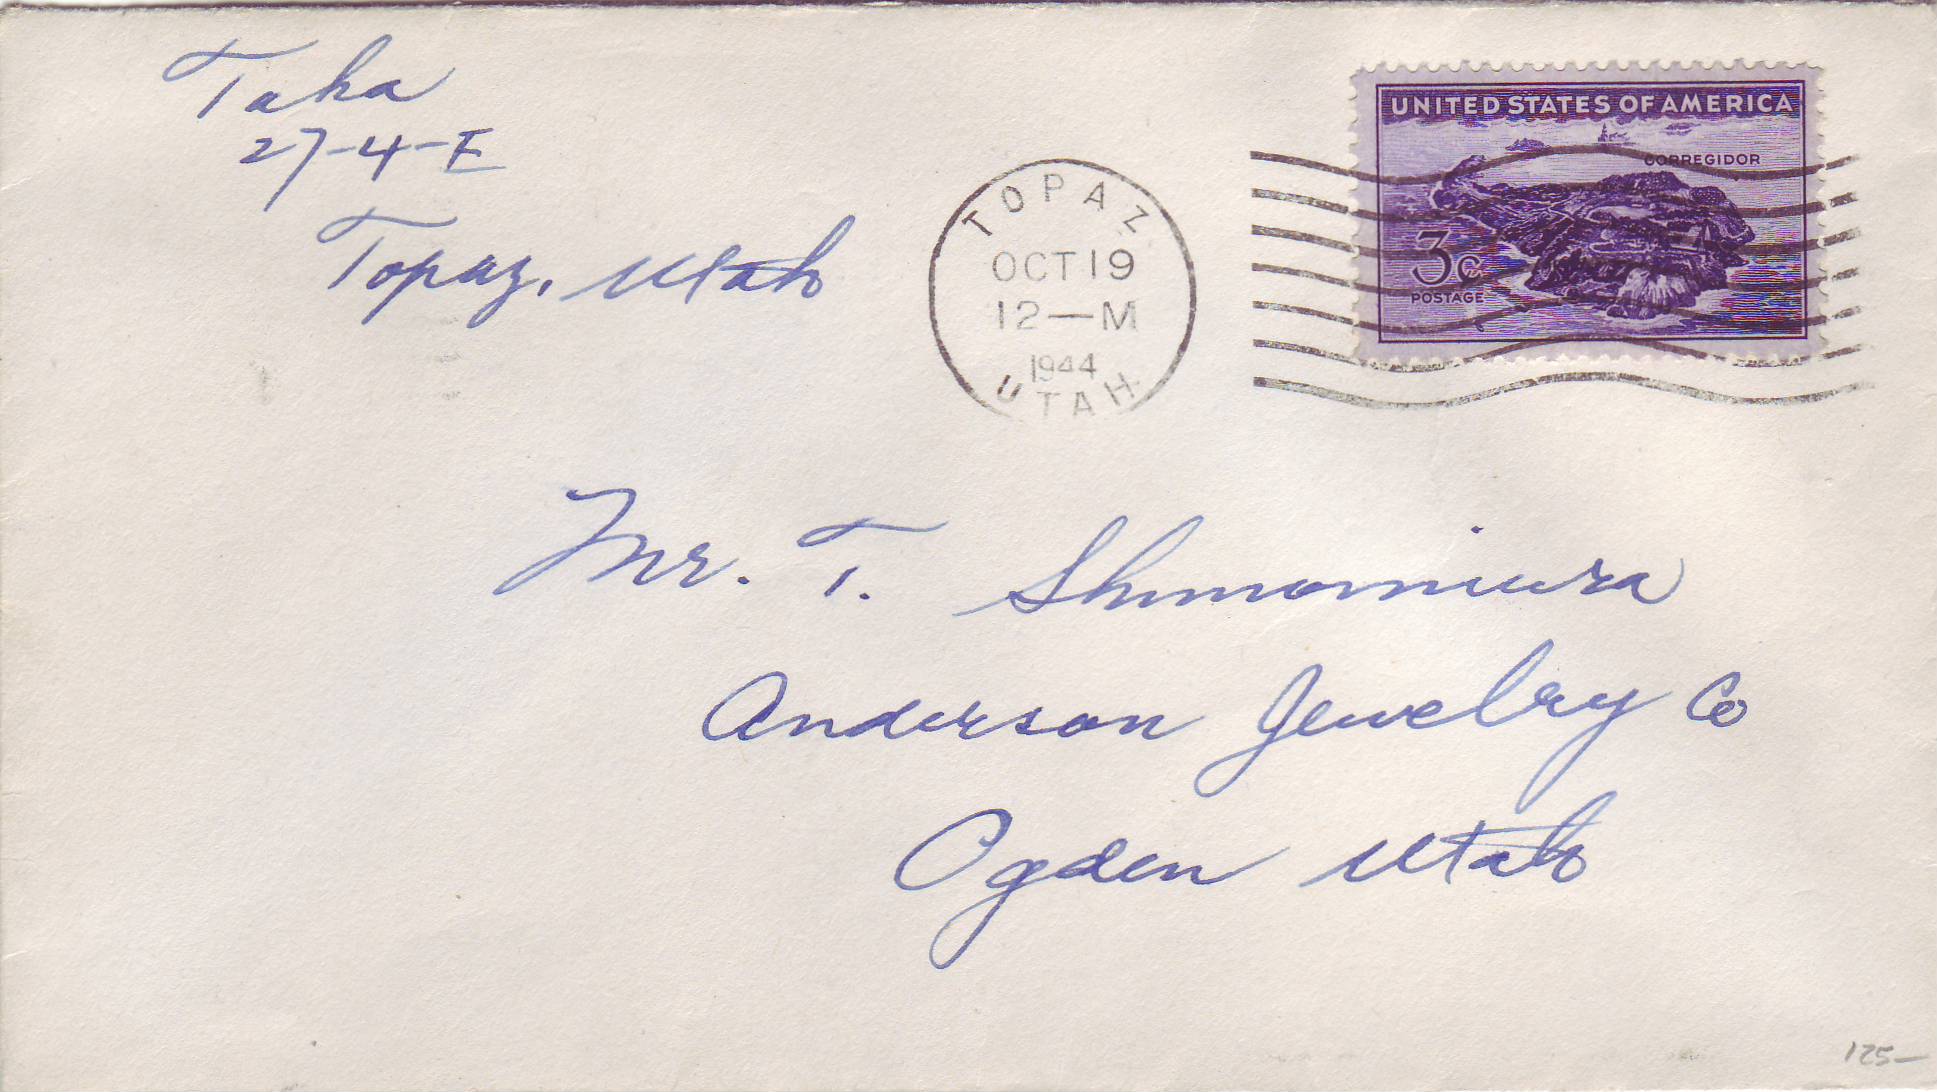 Taka
27-4-E
Topaz, Utah
TOPAZ
OCT 19
12—M
1944
UTAH
UNITED STATES OF AMERICA
CORREGIDOR
3c
POSTAGE
Mr. T. Shmomiura
Anderson Jewelry Co
Ogden Utah
125—